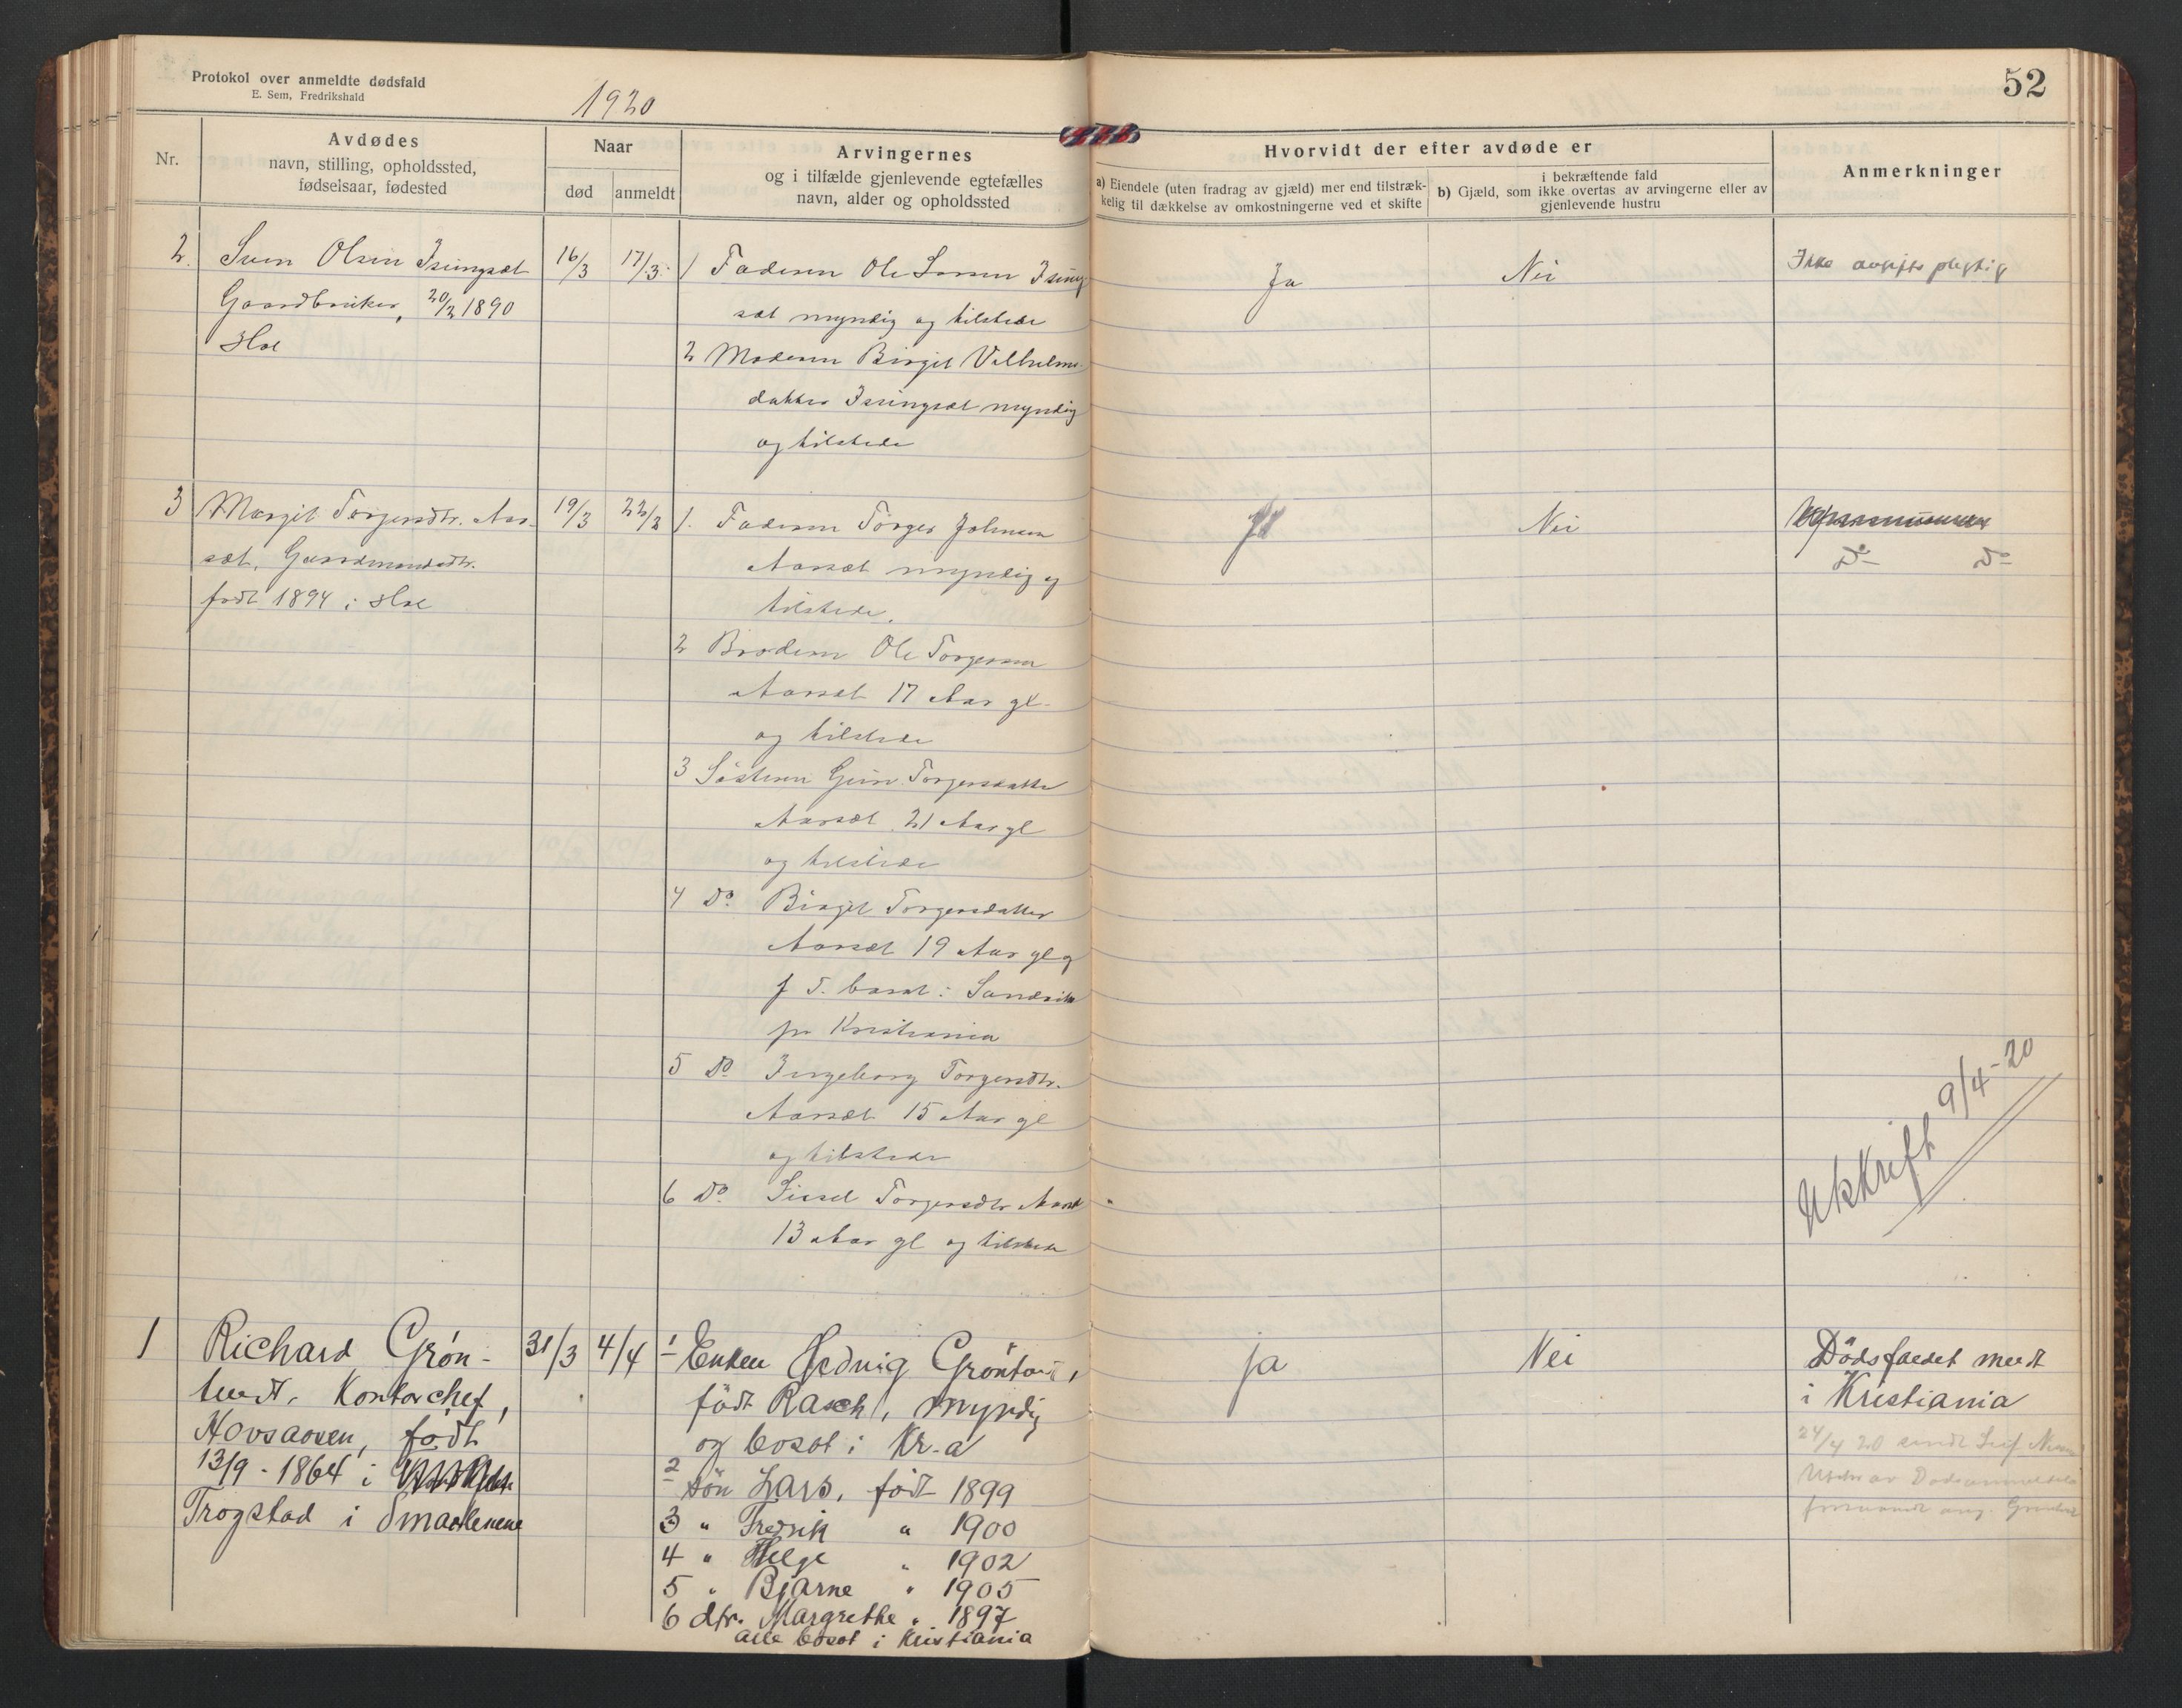 Protokol over anmeldte dødsfald
E. Sem, Fredrikshald
1920
52
Nr.
Avdødes
navn, stilling, opholdssted,
fødselsaar, fødested
Naar
død
anmeldt
Arvingernes
og i tilfælde gjenlevende egtefælles
navn, alder og opholdssted
Hvorvidt der efter avdøde er
a) Eiendele (uten fradrag av gjæld) mer end tilstræk-
kelig til dækkelse av omkostningerne ved et skifte
i bekræftende fald
b) Gjæld, som ikke overtas av arvingerne eller av
gjenlevende hustru
Anmerkninger
2. Svein Olsen Isungset
Gaardbruker, 20/3 1890
Hol
16/3
17/3
1 Faderen Ole Isung
set myndig og tilstede
2 Moderen Birgit Vilhelms
datter Isungset myndig
og tilstede
Ja
Nei
Ikke avgiftspligtig
3 Margit Torgersdtr. Aar-
set, Gaardmandsdtr.
født 1894 i Hol
19/3
22/3
1. Faderen Torger Johnsen
Aarset myndig og
tilstede.
2 Broderen Ole Torgersen
Aarset 17 Aar gl.
og tilstede
3 Søsteren Guri Torgersdatter
Aarset 21 Aar gl
og tilstede
4 Do Birgit Torgersdatter
Aarset 19 Aar gl og
f. T. bosat i Sandvika
pr Kristiania
5 Do Ingeborg Torgersdtr.
Aarset 15 Aar gl
og tilstede
6 Do Sissel Torgersdtr Aarset
13 Aar gl og tilstede
Ja
Nei
Do Do
Utskrift 9/4-20
1 Richard Grøn-
tvedt, Kontorchef,
Hovsaasen, født
13/9 - 1864 i
Trogstad i Smaalenene
31/3
4/4
1 Enken Hedvig Grøntvedt,
født Rasch, myndig
og bosat i Kr-a
2 søn Lars, født 1899
3 " Fredrik " 1900
4 " Helge " 1902
5 " Bjarne " 1905
6 dtr. Margrethe " 1897
alle bosat i Kristiania
ja
Nei
Dødsfaldet meldt
i Kristiania
24/4 20 sendt Leif
Utskr av Dødsanmeldelse